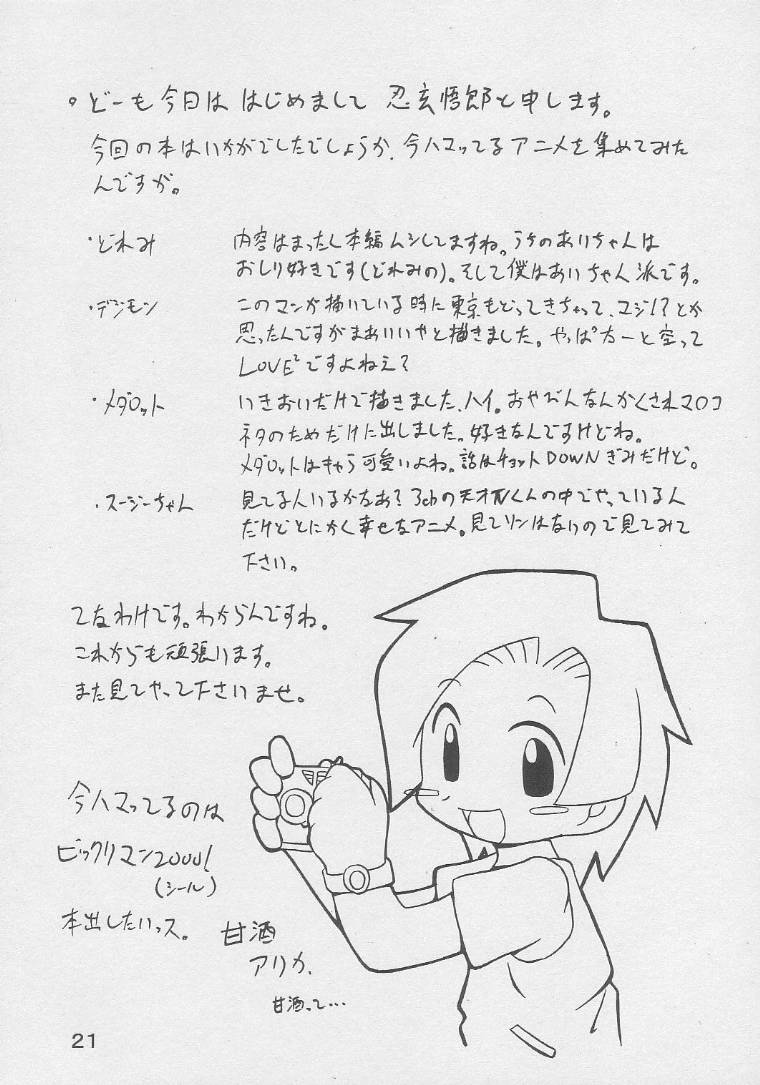 。どーも今日は はじめまして 忍玄悟郎と申します。
今回の本はいかがでしたでしょうか、今ハマってるアニメを集めてみた
んですが。
・どれみ 内容はまったく本編ムシしてますね。うちのあいちゃんは
おしり好きです(どれみの)。そして僕はあいちゃん派です。
・デジモン このマンガ描いている時に東京もどってきちゃって、マジ!?とか
思ったんですがまあいいやと描きました。やっぱ太一と空って
LOVE²ですよねえ?
・メダロット いきおいだけで描きました、ハイ。おやびんなんかくされマロコ
ネタのためだけに出しました。好きなんですけどね。
メダロットはキャラ可愛いよね。話はチョットDOWNぎみだけど。
・スージーちゃん 見てる人いるかなあ?3chの天才てれびくんの中でやっているん
だけどとにかく幸せなアニメ。見てソンはないので見てみて
下さい。
てなわけです。わからんですね。
これからも頑張ります。
また見てやって下さいませ。
今ハマってるのは
ビックリマン2000!
(シール)
本出したいっス。
甘酒
アリカ、
甘酒って…
21